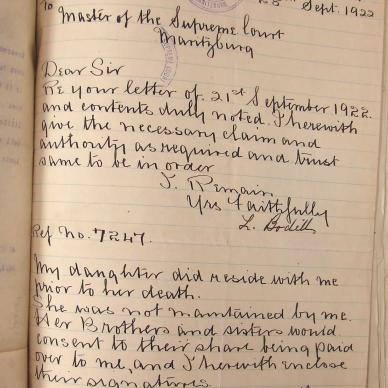 Sept. 1922
To Master of the Supreme Court
Maritzburg
Dear Sir
Re your letter of 21st September 1922
and contents duly noted. I herewith
give the necessary claim and
authority as required and trust
same to be in order
I. Remain
Yrs Faithfully
L.
Ref No. 7247.
My daughter did reside with me
prior to her death.
She was not maintained by me.
Her Brothers and sisters would
consent to their share being paid
over to me, and I herewith enclose
their signatures